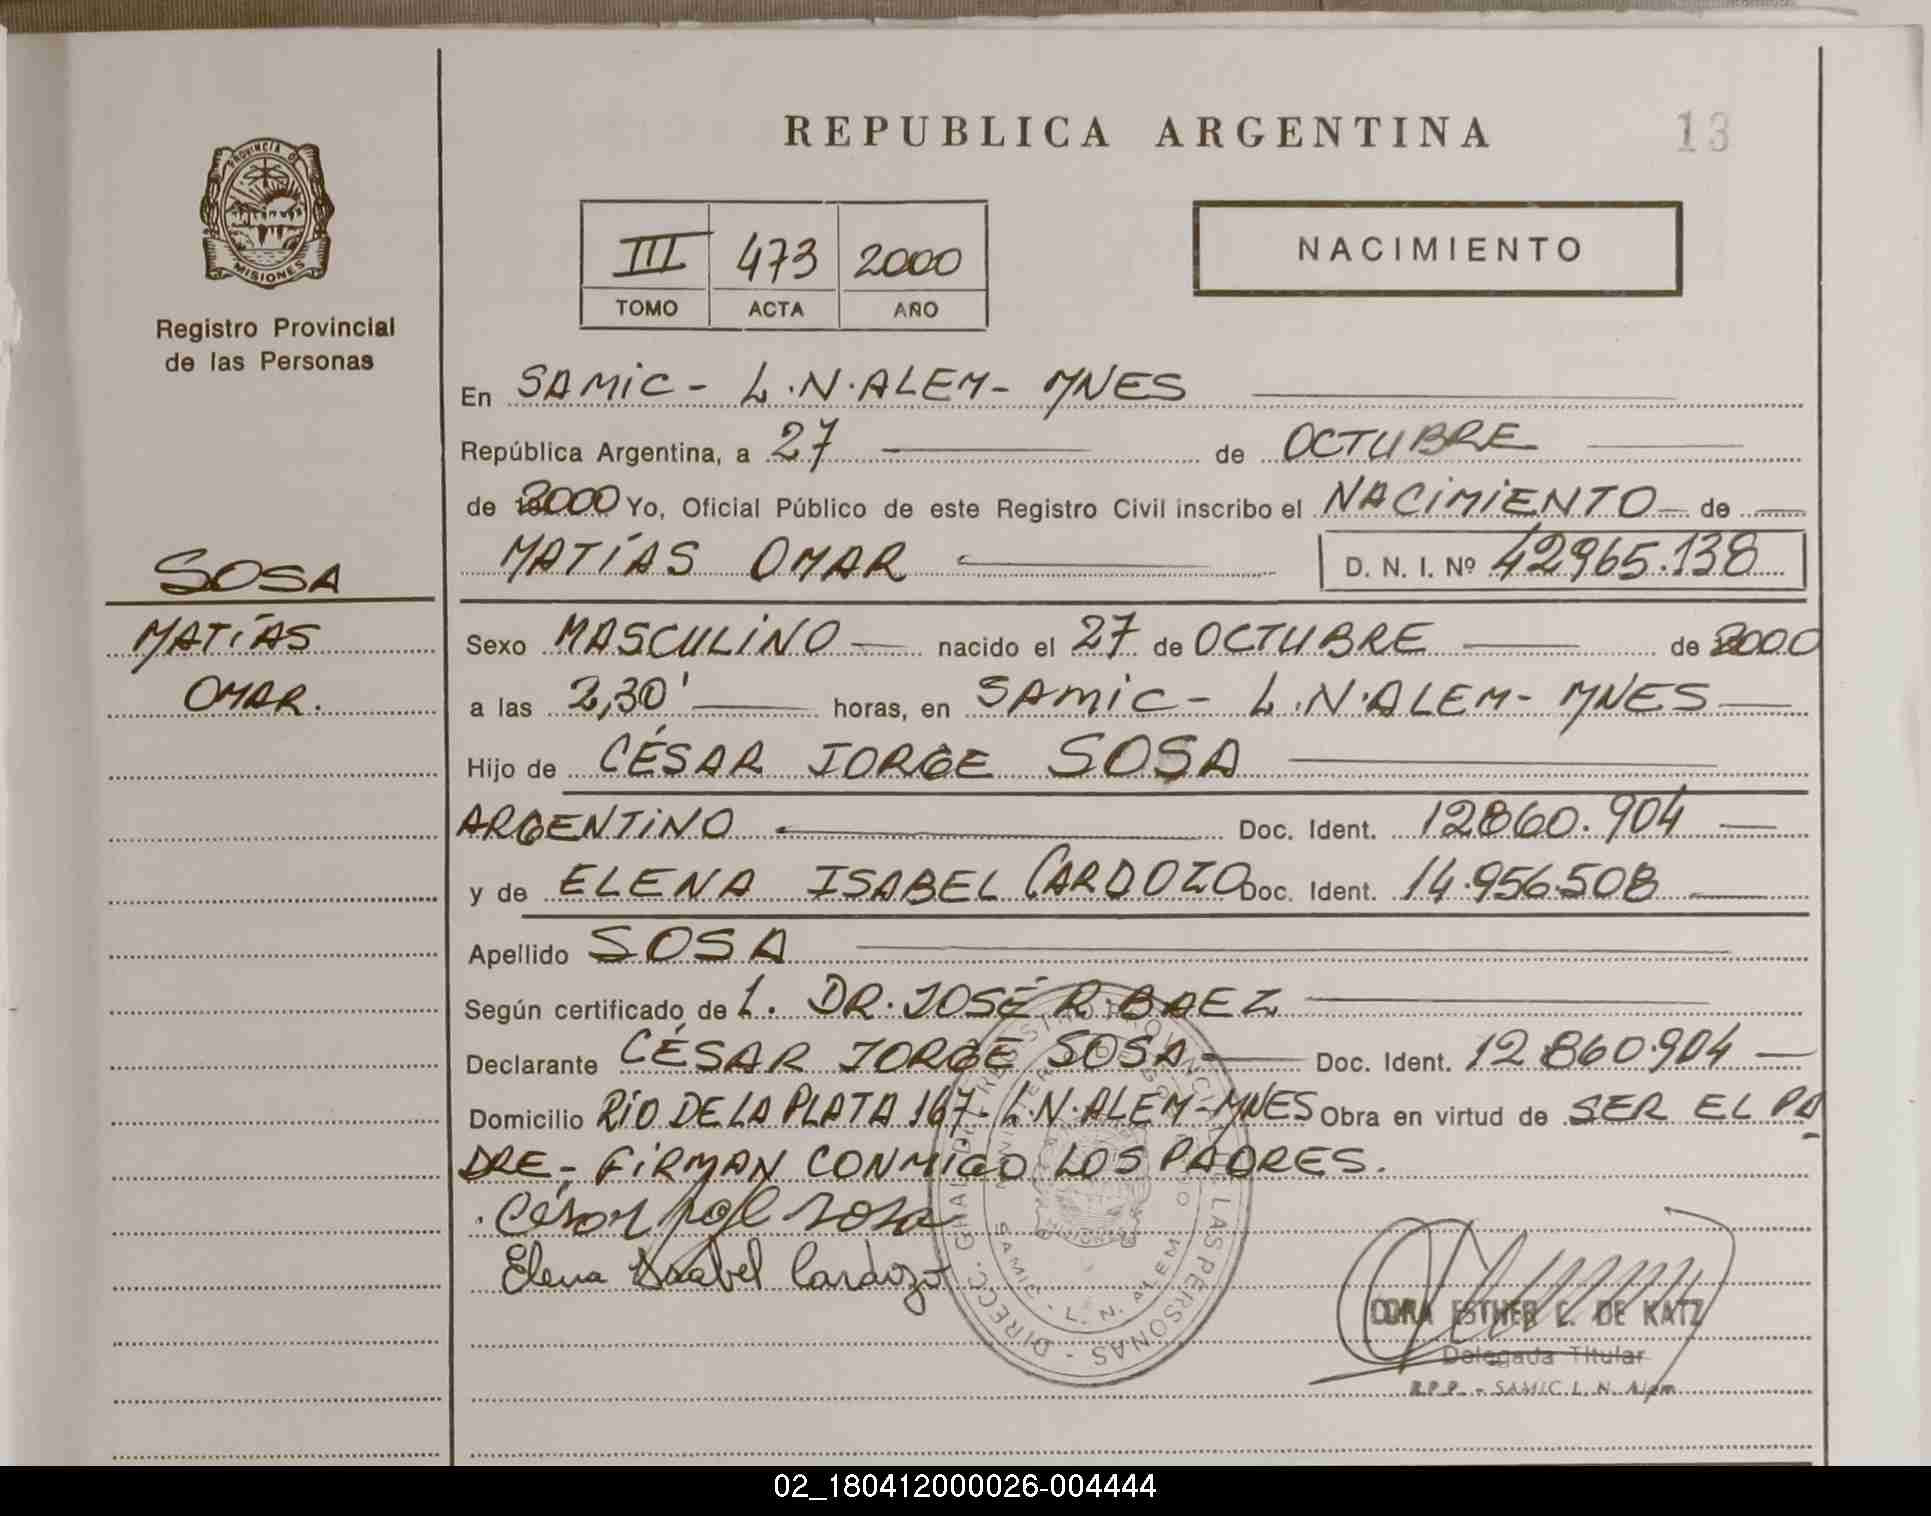 REPUBLICA ARGENTINA
13
PROVINCIA DE
MISIONES
Registro Provincial
de las Personas
III 473 2000
TOMO ACTA AÑO
NACIMIENTO
En SAMIC - L.N.ALEM - MNES
República Argentina, a 27 de OCTUBRE
de 2000 Yo, Oficial Público de este Registro Civil inscribo el NACIMIENTO de
MATÍAS OMAR D. N. I. Nº 42965.138
SOSA
MATÍAS
OMAR.
Sexo MASCULINO nacido el 27 de OCTUBRE de 2000
a las 2,30' horas, en SAMIC - L.N.ALEM - MNES
Hijo de CÉSAR JORGE SOSA
ARGENTINO Doc. Ident. 12860.904
y de ELENA ISABEL CARDOZO Doc. Ident. 14.956.508
Apellido SOSA
Según certificado de L. DR. JOSÉ R. BAEZ
Declarante CÉSAR JORGE SOSA Doc. Ident. 12.860.904
Domicilio RÍO DE LA PLATA 167. L.N.ALEM - MNES Obra en virtud de SER EL PA
DRE - FIRMAN CONMIGO LOS PADRES.
César Jorge Sosa
Elena Isabel Cardozo
DIRECC. GRAL. DEL REGISTRO PROVINCIAL DE LAS PERSONAS
SAMIC - L. N. ALEM
ESTHER C. DE KATZ
Delegada Titular
R.P.P. - SAMIC L. N. Alem
02_180412000026-004444